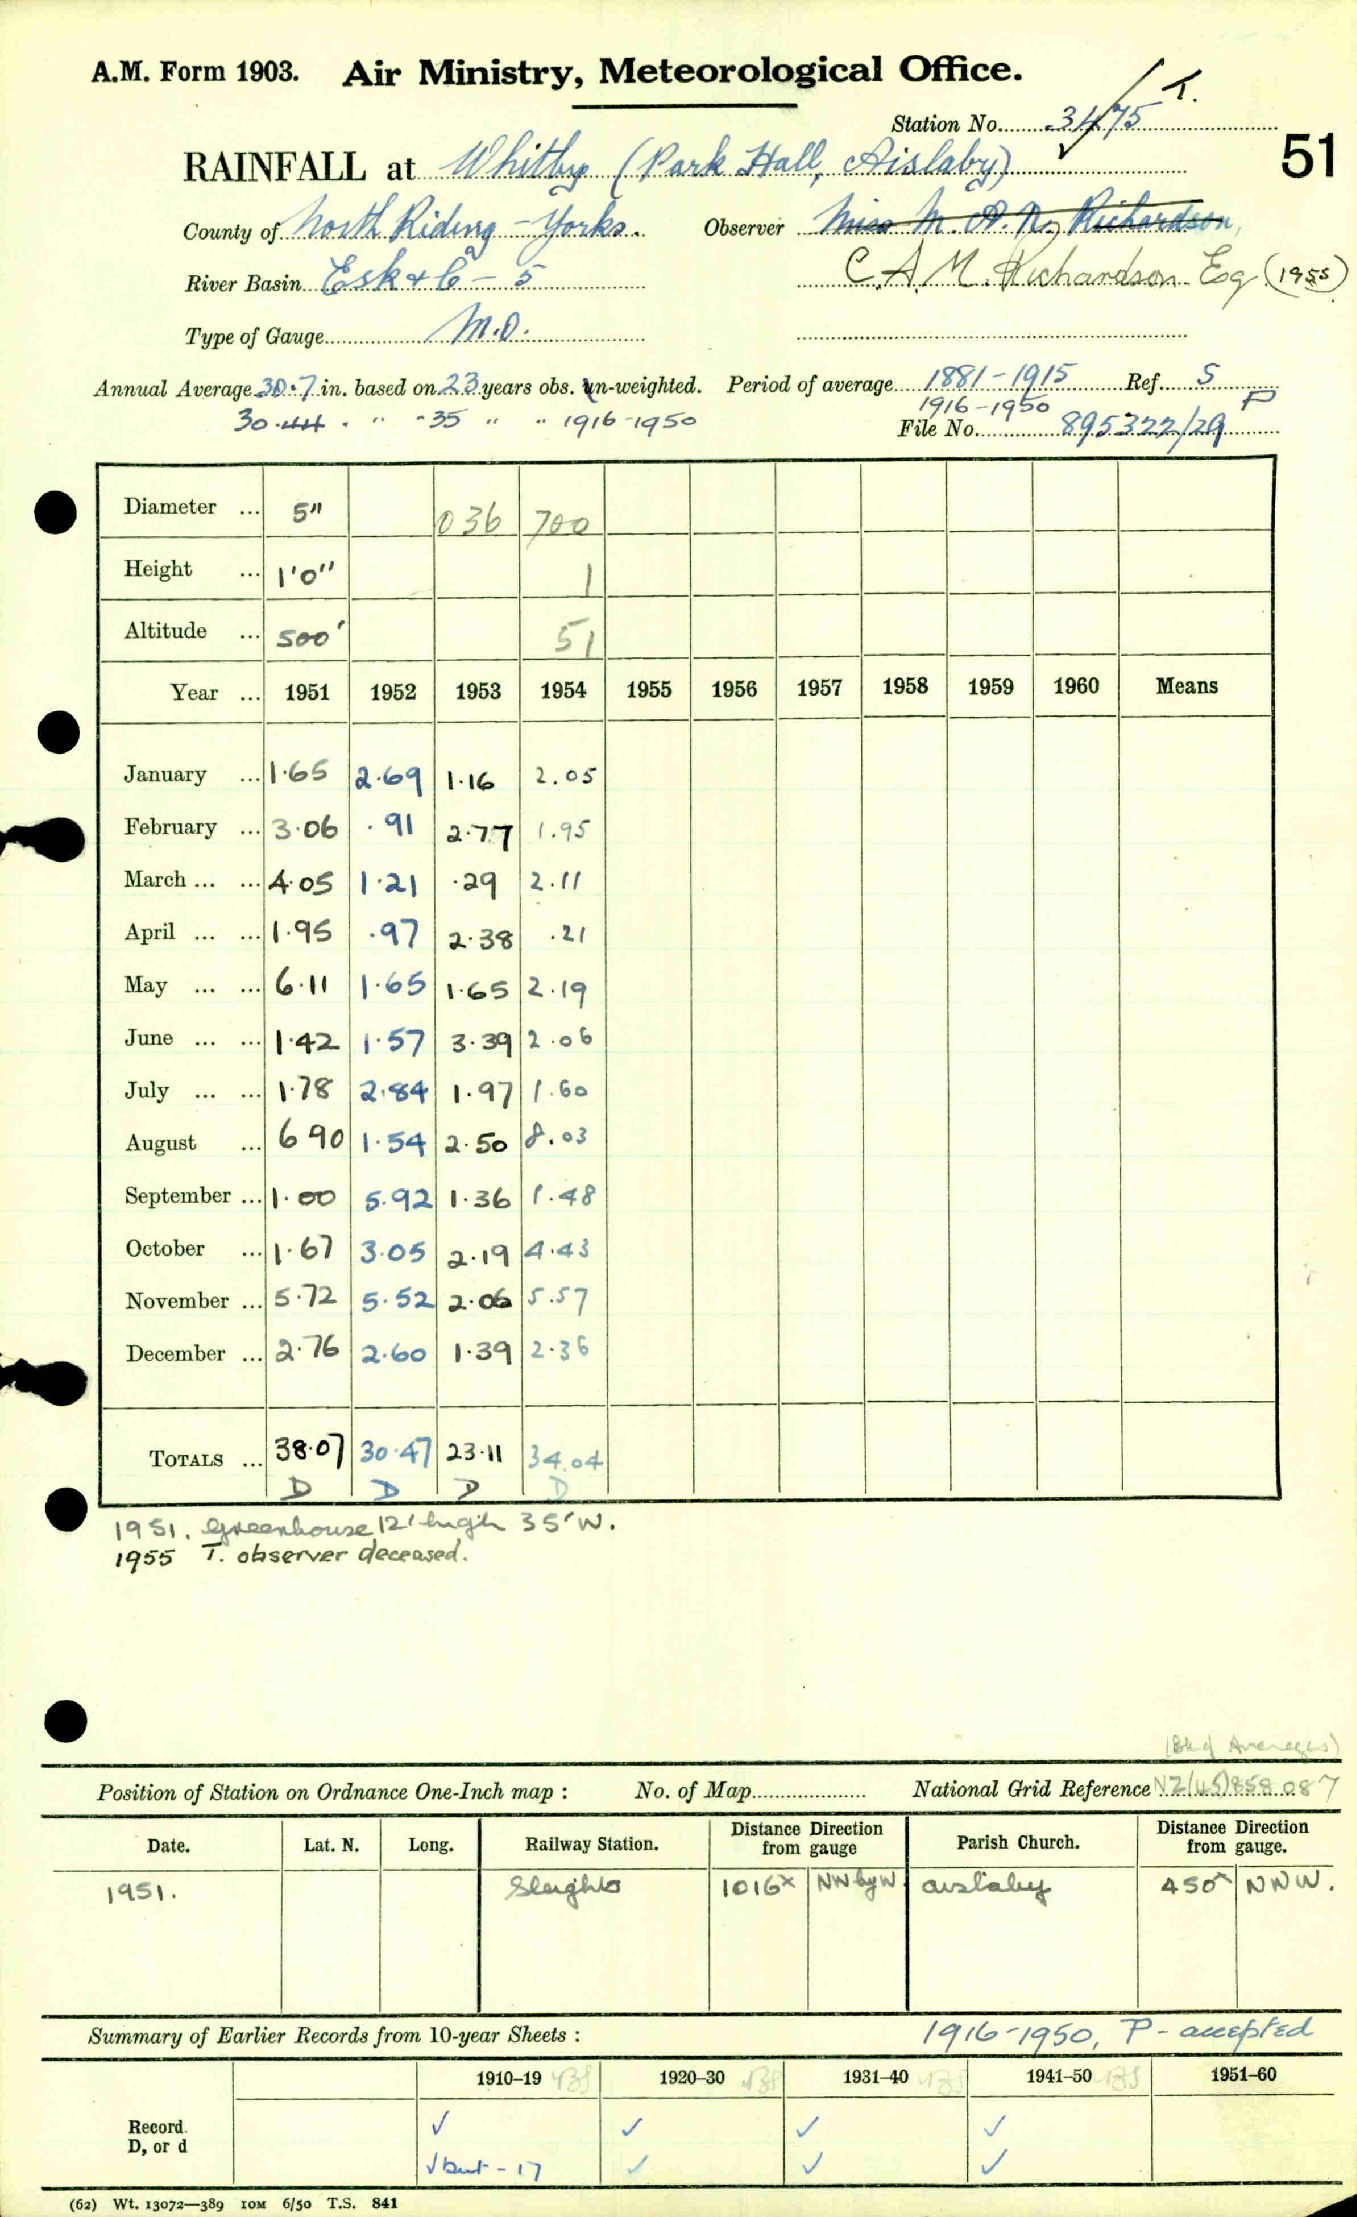 A.M. Form 1903. Air Ministry, Meteorological Office.
T.
Station No. 3475
51
RAINFALL at Whitby (Park Hall, Aislaby)
County of North Riding - Yorks. Observer Miss M. A. N. Richardson,
River Basin Esk & C - 5 C. A. M. Richardson Esq (1955)
Type of Gauge M.O.
Annual Average 30.7 in. based on 23 years obs. un-weighted. Period of average 1881-1915 Ref. S
30.44 . " - 35 " " 1916-1950 1916-1950 P
File No. 895322/29
Diameter ... 5" 036 700
Height ... 1'0" 1
Altitude ... 500' 51
Year ... 1951 1952 1953 1954 1955 1956 1957 1958 1959 1960 Means
January ... 1.65 2.69 1.16 2.05
February ... 3.06 .91 2.77 1.95
March ... ... 4.05 1.21 .29 2.11
April ... ... 1.95 .97 2.38 .21
May ... ... 6.11 1.65 1.65 2.19
June ... ... 1.42 1.57 3.39 2.06
July ... ... 1.78 2.84 1.97 1.60
August ... 6 90 1.54 2.50 8.03
September ... 1.00 5.92 1.36 1.48
October ... 1.67 3.05 2.19 4.43
November ... 5.72 5.52 2.06 5.57
December ... 2.76 2.60 1.39 2.36
TOTALS ... 38.07 30.47 23.11 34.04
D D D D
1951. Greenhouse 12' high 35' W.
1955 T. observer deceased.
(Bkd Averages)
Position of Station on Ordnance One-Inch map : No. of Map National Grid Reference NZ/(45)858087
Date. Lat. N. Long. Railway Station. Distance Direction from gauge Parish Church. Distance Direction from gauge.
1951. Sleights 1016x NW by W. aislaby 450x NNW.
Summary of Earlier Records from 10-year Sheets : 1916-1950, P - accepted
1910-19 1920-30 1931-40 1941-50 1951-60
Record. ✓ ✓ ✓ ✓
D, or d ✓ but - 17 ✓ ✓ ✓
(62) Wt. 13072—389 10M 6/50 T.S. 841